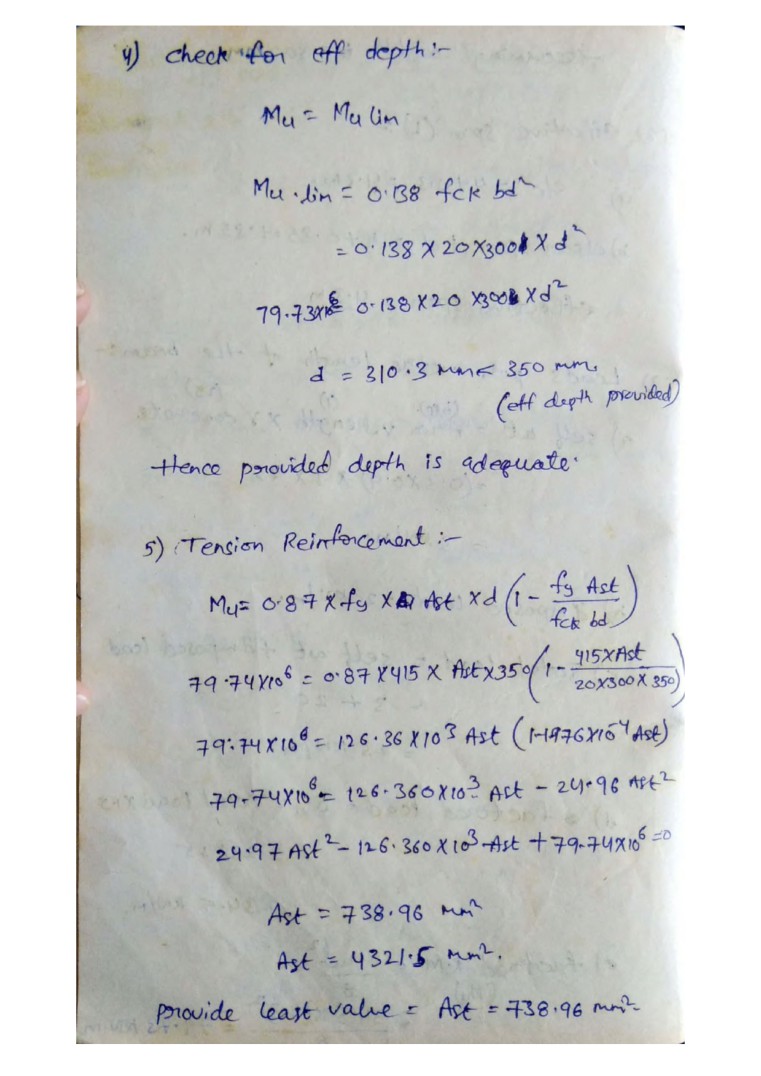 4) check for eff depth :-
Mu = Mu lim
Mu.lim = 0.138 fck bd²
= 0.138 X 20 X 300 X d²
79.73X10⁶ = 0.138 X 20 X 300 X d²
d = 310.3 mm < 350 mm.
(eff depth provided)
Hence provided depth is adequate.
5) Tension Reinforcement :-
Mu = 0.87 X fy X Ast X d (1 - fy Ast / fck bd)
79.74X10⁶ = 0.87 X 415 X Ast X 350 (1 - 415XAst / 20X300X350)
79.74X10⁶ = 126.36 X 10³ Ast (1-1.976X10⁻⁴ Ast)
79.74X10⁶ = 126.360X10³ Ast - 24.96 Ast²
24.97 Ast² - 126.360X10³ Ast + 79.74X10⁶ = 0
Ast = 738.96 mm²
Ast = 4321.5 mm².
provide least value = Ast = 738.96 mm²